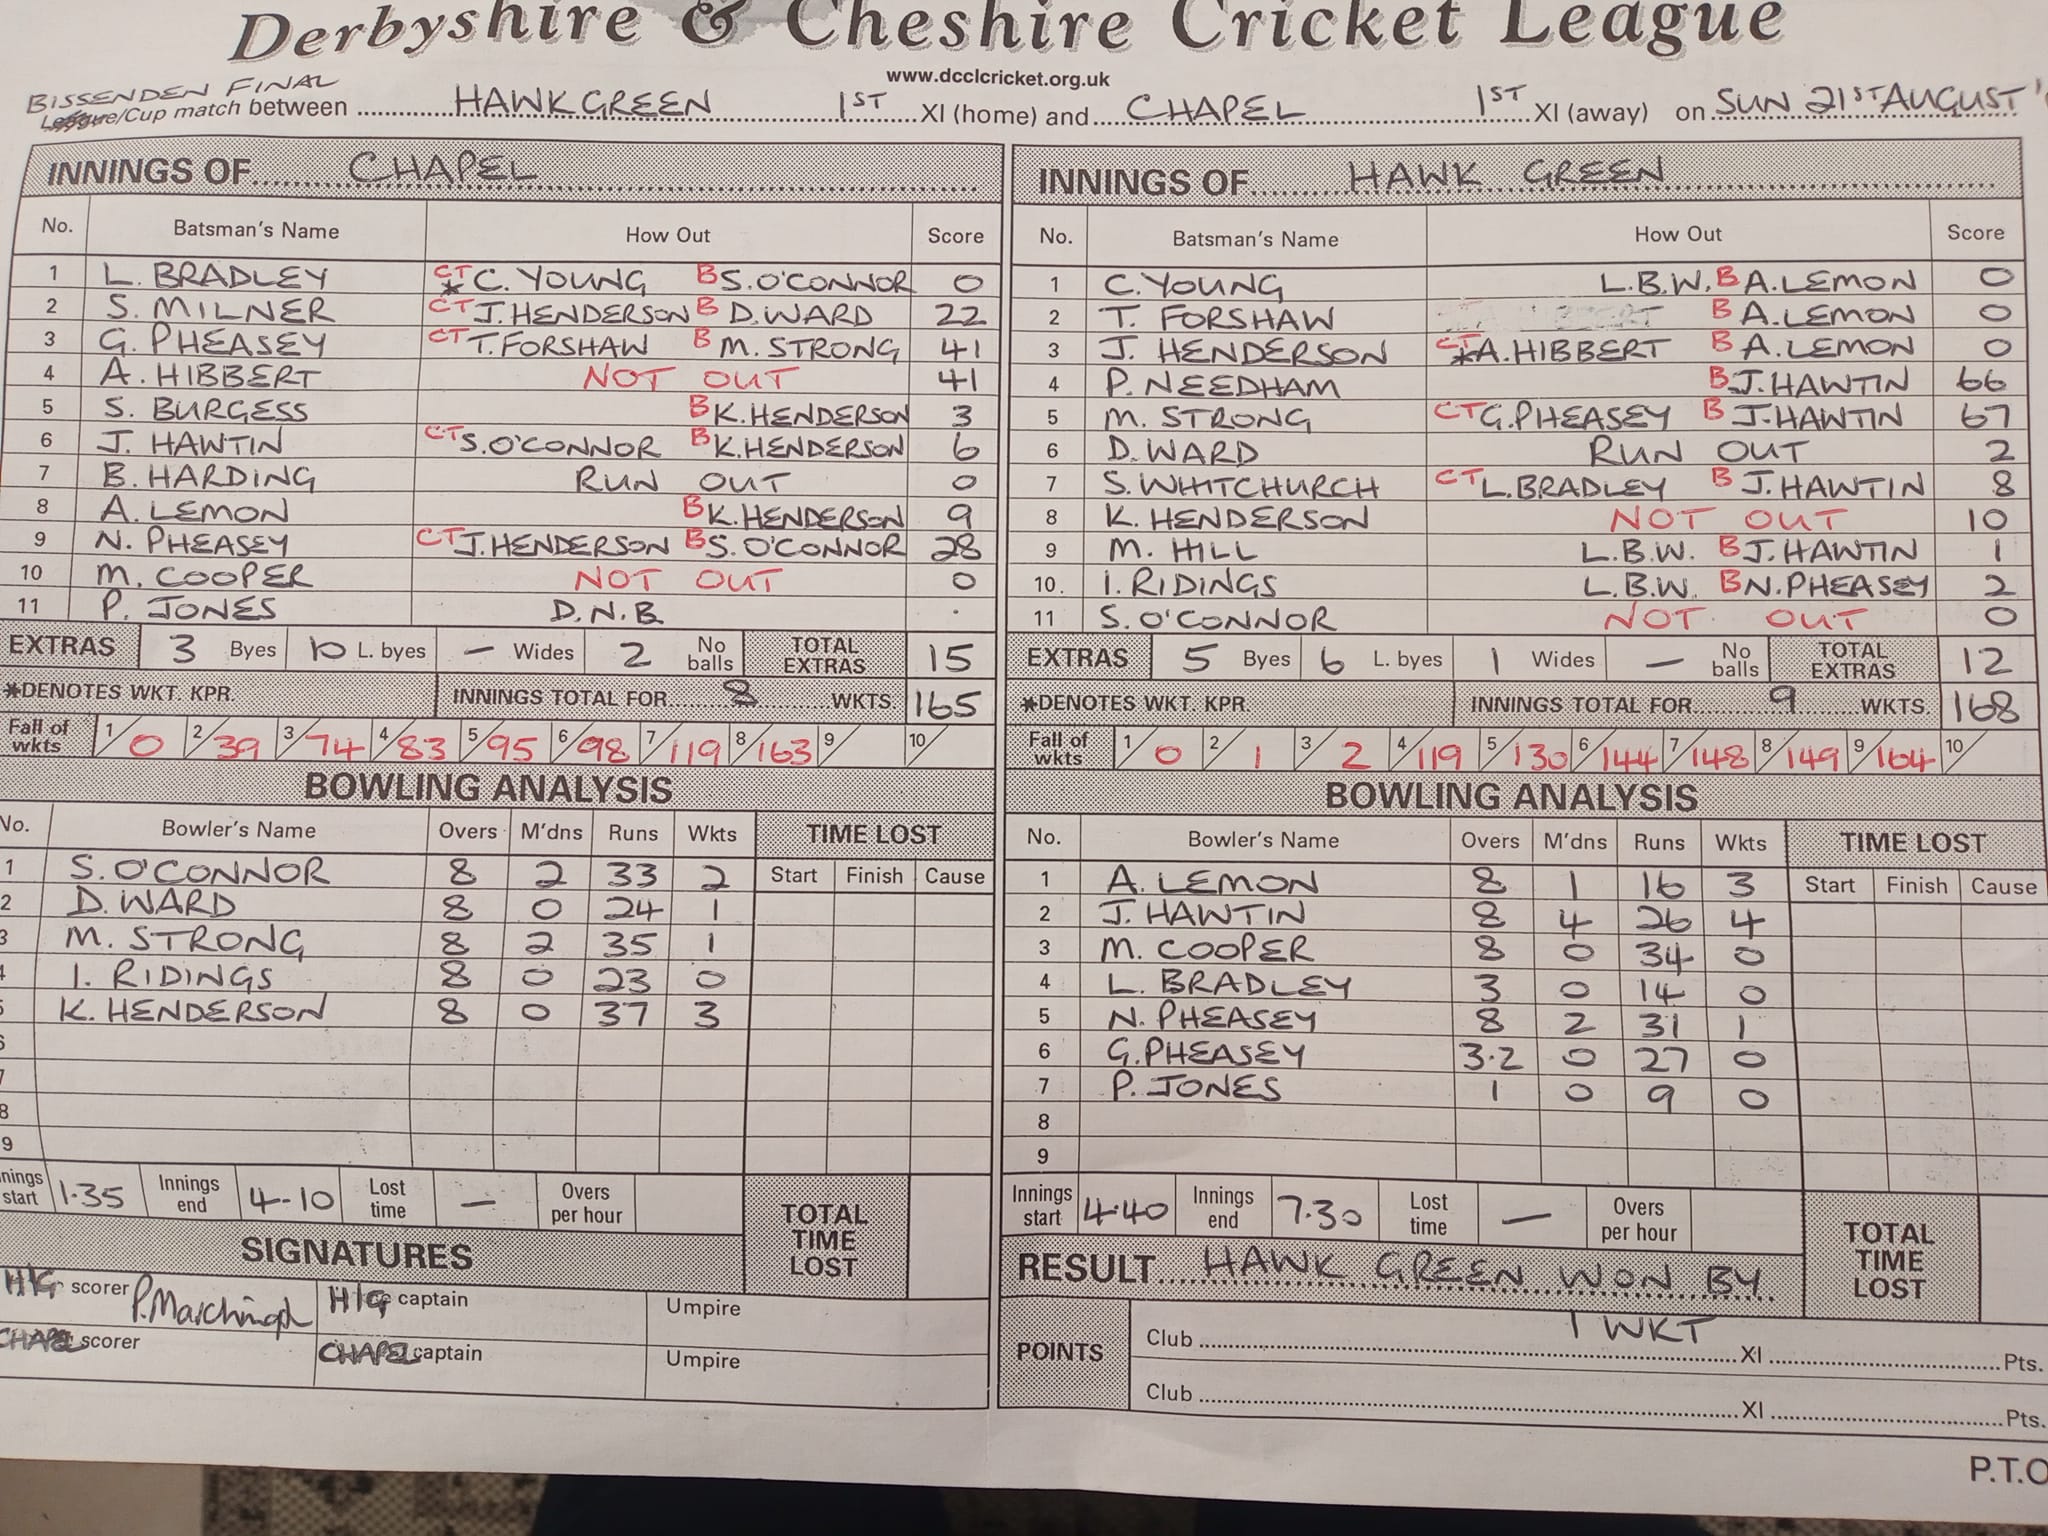 Derbyshire & Cheshire Cricket League
www.dcclcricket.org.uk
BISSENDEN FINAL
League/Cup match between HAWK GREEN 1ST XI (home) and CHAPEL 1ST XI (away) on SUN 21ST AUGUST
INNINGS OF CHAPEL
No. Batsman's Name How Out Score
1 L. BRADLEY CT *C. YOUNG B S. O'CONNOR 0
2 S. MILNER CT J. HENDERSON B D. WARD 22
3 G. PHEASEY CT T. FORSHAW B M. STRONG 41
4 A. HIBBERT NOT OUT 41
5 S. BURGESS B K. HENDERSON 3
6 J. HAWTIN CT S. O'CONNOR B K. HENDERSON 6
7 B. HARDING RUN OUT 0
8 A. LEMON B K. HENDERSON 9
9 N. PHEASEY CT J. HENDERSON B S. O'CONNOR 28
10 M. COOPER NOT OUT 0
11 P. JONES D.N.B. .
EXTRAS 3 Byes 10 L. byes - Wides 2 No balls TOTAL EXTRAS 15
*DENOTES WKT. KPR. INNINGS TOTAL FOR 8 WKTS. 165
Fall of wkts 1/0 2/39 3/74 4/83 5/95 6/98 7/119 8/163 9/ 10/
BOWLING ANALYSIS
No. Bowler's Name Overs M'dns Runs Wkts TIME LOST
Start Finish Cause
1 S. O'CONNOR 8 2 33 2
2 D. WARD 8 0 24 1
3 M. STRONG 8 2 35 1
4 I. RIDINGS 8 0 23 0
5 K. HENDERSON 8 0 37 3
6
7
8
9
nnings start 1.35 Innings end 4-10 Lost time - Overs per hour
TOTAL TIME LOST
SIGNATURES
H/G scorer P. Marchingh H/G captain Umpire
CHAPEL scorer CHAPEL captain Umpire
INNINGS OF HAWK GREEN
No. Batsman's Name How Out Score
1 C. YOUNG L.B.W. B A. LEMON 0
2 T. FORSHAW B A. LEMON 0
3 J. HENDERSON CT *A. HIBBERT B A. LEMON 0
4 P. NEEDHAM B J. HAWTIN 66
5 M. STRONG CT G. PHEASEY B J. HAWTIN 67
6 D. WARD RUN OUT 2
7 S. WHITCHURCH CT L. BRADLEY B J. HAWTIN 8
8 K. HENDERSON NOT OUT 10
9 M. HILL L.B.W. B J. HAWTIN 1
10. I. RIDINGS L.B.W. B N. PHEASEY 2
11 S. O'CONNOR NOT OUT 0
EXTRAS 5 Byes 6 L. byes 1 Wides - No balls TOTAL EXTRAS 12
*DENOTES WKT. KPR. INNINGS TOTAL FOR 9 WKTS. 168
Fall of wkts 1/0 2/1 3/2 4/119 5/130 6/144 7/148 8/149 9/164 10/
BOWLING ANALYSIS
No. Bowler's Name Overs M'dns Runs Wkts TIME LOST
Start Finish Cause
1 A. LEMON 8 1 16 3
2 J. HAWTIN 8 4 26 4
3 M. COOPER 8 0 34 0
4 L. BRADLEY 3 0 14 0
5 N. PHEASEY 8 2 31 1
6 G. PHEASEY 3.2 0 27 0
7 P. JONES 1 0 9 0
8
9
Innings start 4.40 Innings end 7.30 Lost time - Overs per hour
TOTAL TIME LOST
RESULT HAWK GREEN WON BY
1 WKT
POINTS
Club XI Pts.
Club XI Pts.
P.T.O